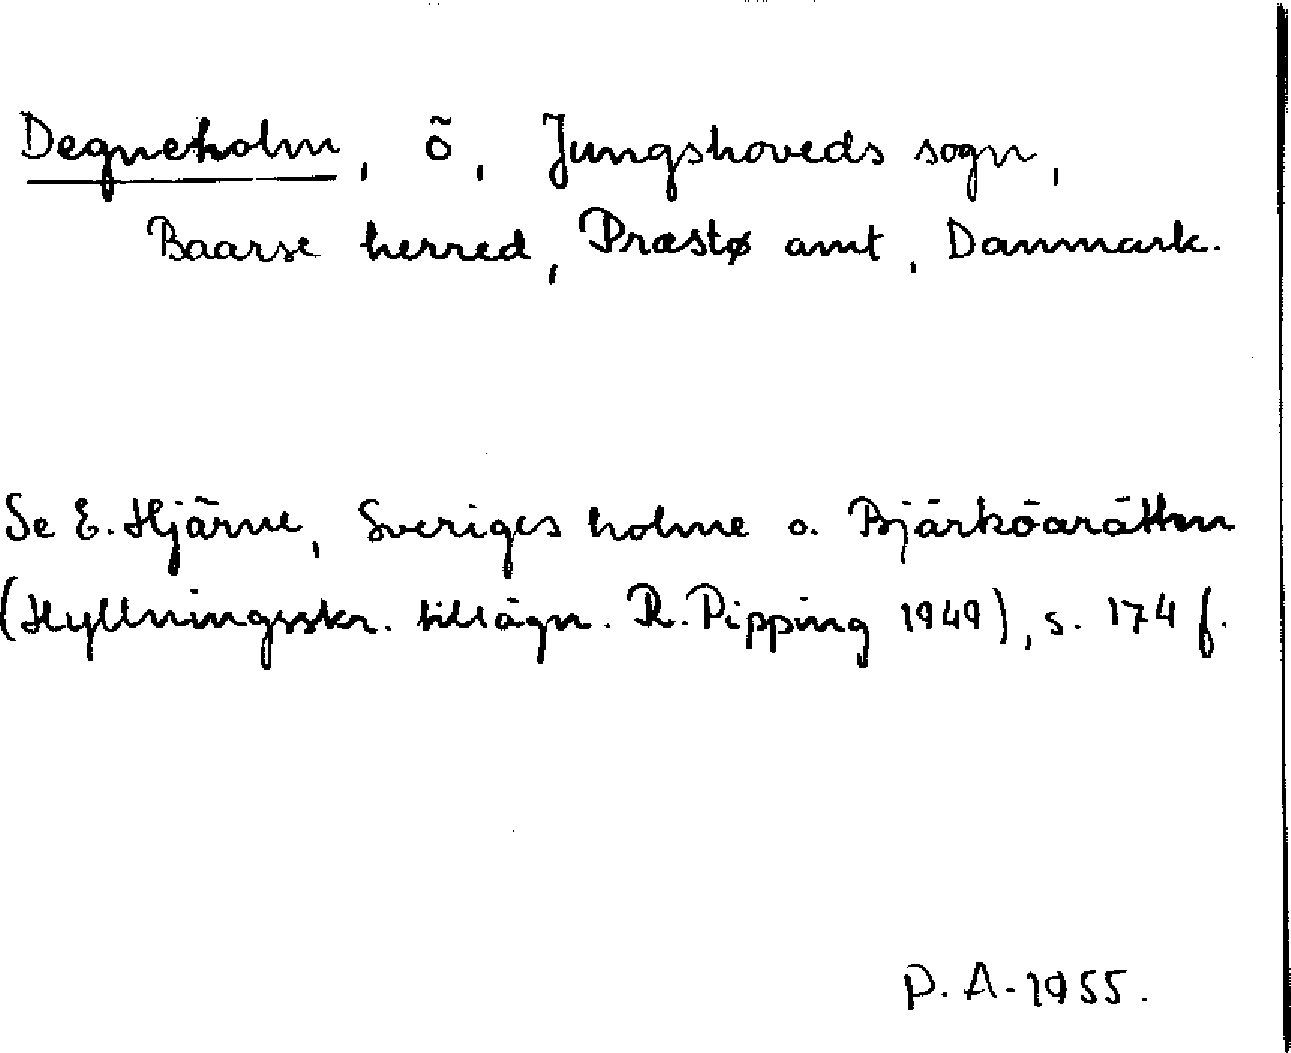 Degneholm, ö, Jungshoveds sogn,
Baarse herred, Præstø amt, Danmark.
Se E. Hjärne, Sveriges holme o. Bjärköarätten
(Hyllningsskr. tillägn. R. Pipping 1949), s. 174 f.
P. A. 1955.